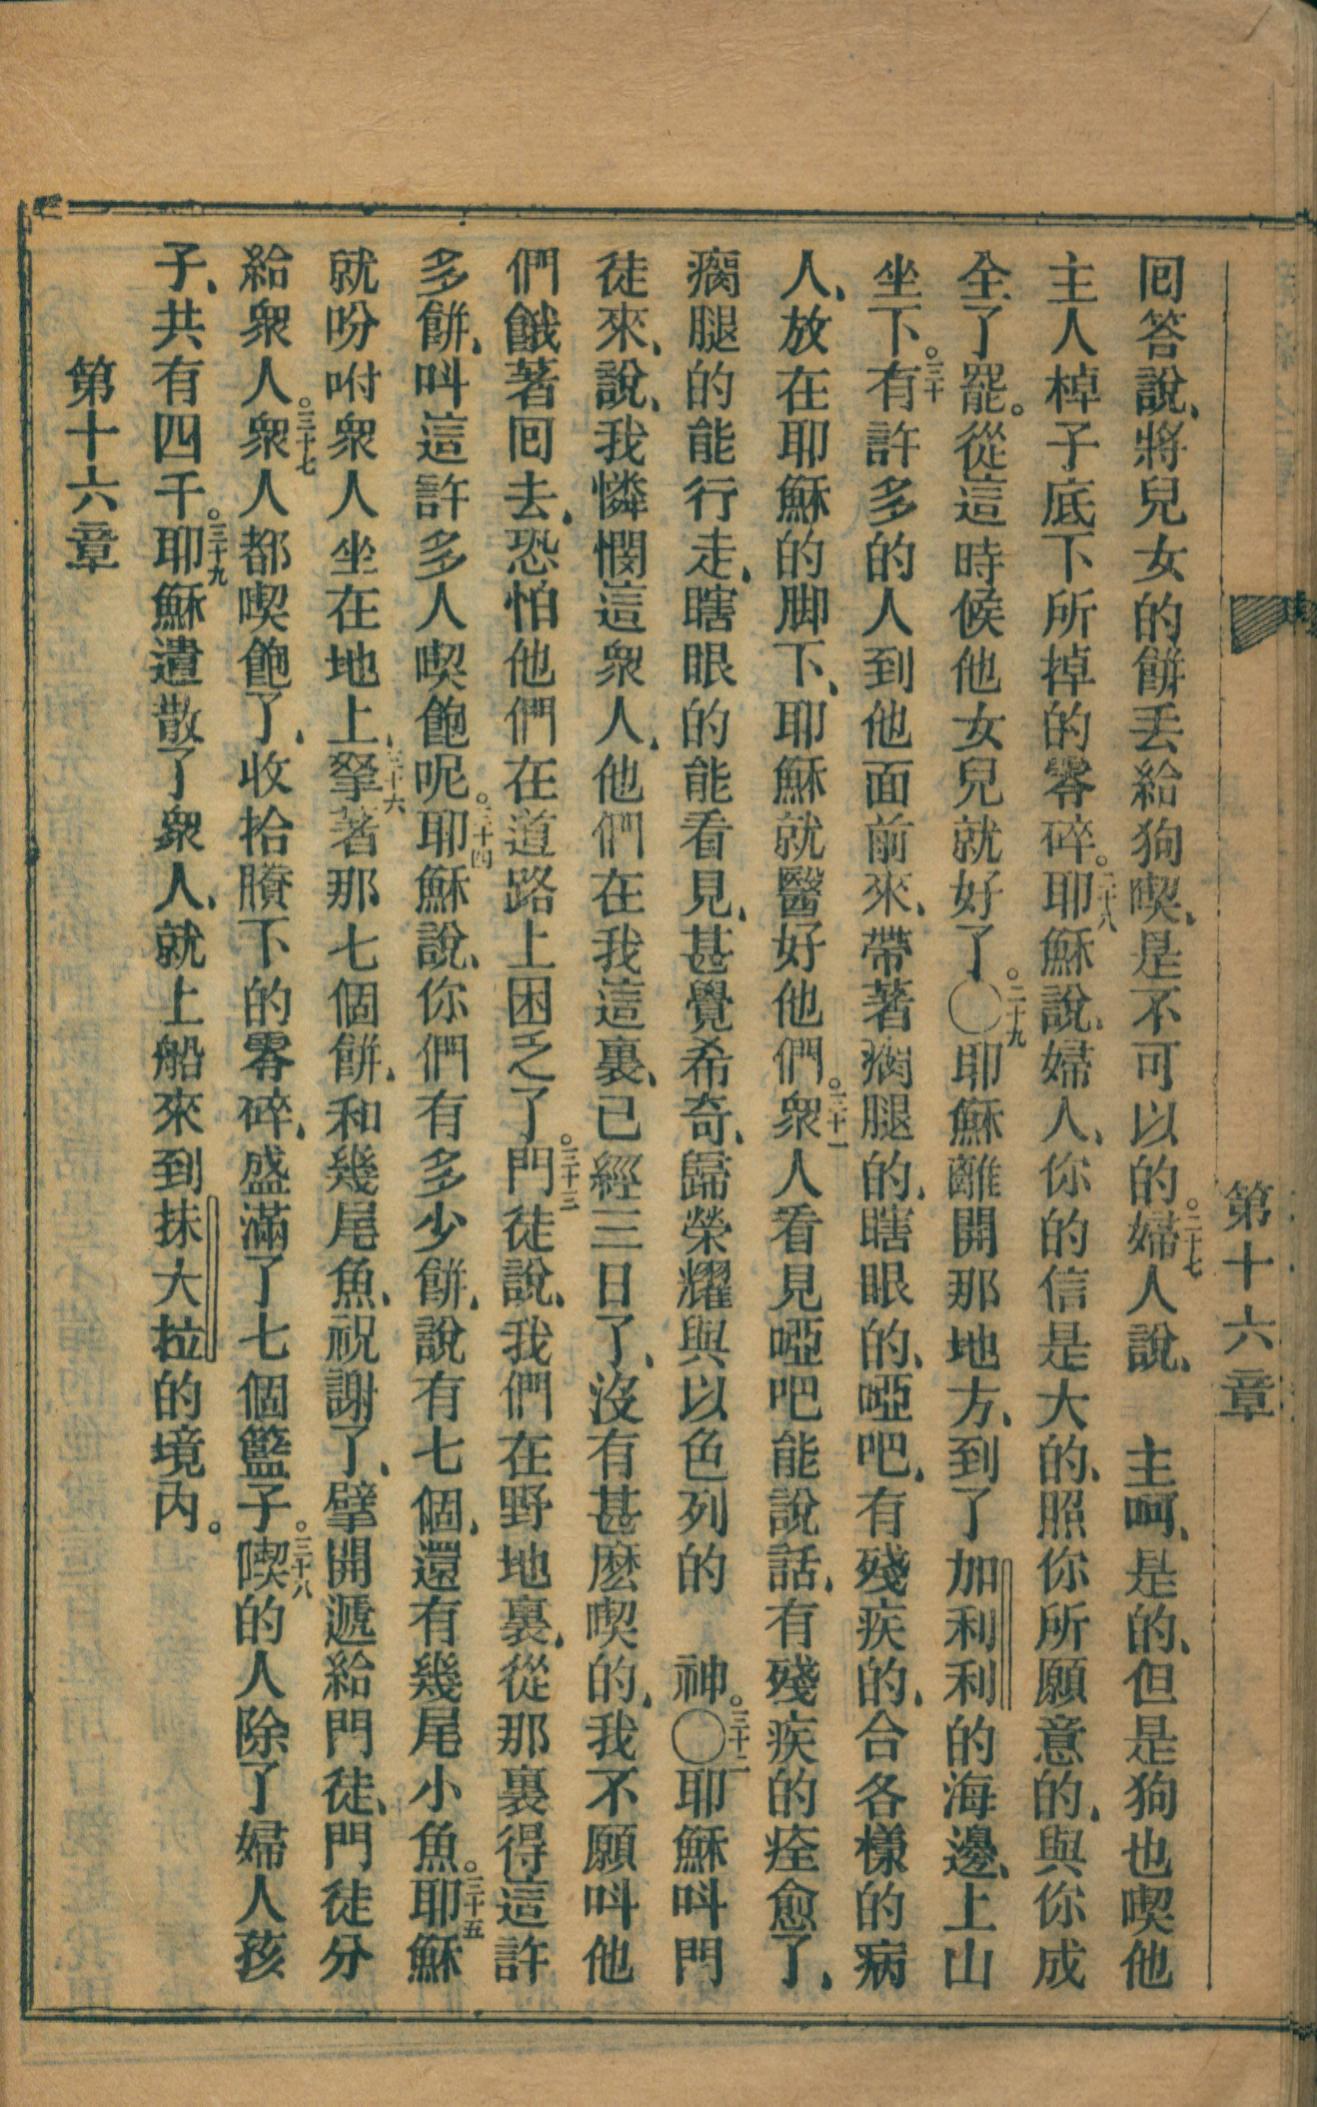 第十六章
回答說、將兒女的餅丟給狗喫、是不可以的。二十七婦人說、　主呵、是的、但是狗也喫他
主人棹子底下所掉的零碎。二十八耶穌說、婦人、你的信是大的、照你所願意的、與你成
全了罷。從這時候他女兒就好了。〇二十九耶穌離開那地方、到了加利利的海邊、上山
坐下。三十有許多的人到他面前來、帶著瘸腿的、瞎眼的、啞吧、有殘疾的、合各樣的病
人、放在耶穌的脚下、耶穌就醫好他們。三十一衆人看見啞吧能說話、有殘疾的痊愈了、
瘸腿的能行走、瞎眼的能看見、甚覺希奇、歸榮耀與以色列的　神。〇三十二耶穌叫門
徒來、說、我憐憫這衆人、他們在我這裏、已經三日了、沒有甚麽喫的、我不願叫他
們餓著回去、恐怕他們在道路上困乏了。三十三門徒說、我們在野地裏、從那裏得這許
多餅、叫這許多人喫飽呢。三十四耶穌說、你們有多少餅、說有七個、還有幾尾小魚。三十五耶穌
就吩咐衆人坐在地上、三十六拏著那七個餅、和幾尾魚、祝謝了、擘開遞給門徒、門徒分
給衆人。三十七衆人都喫飽了、收拾賸下的零碎、盛滿了七個籃子。三十八喫的人除了婦人孩
子、共有四千。三十九耶穌遣散了衆人、就上船來到抹大拉的境內。
第十六章